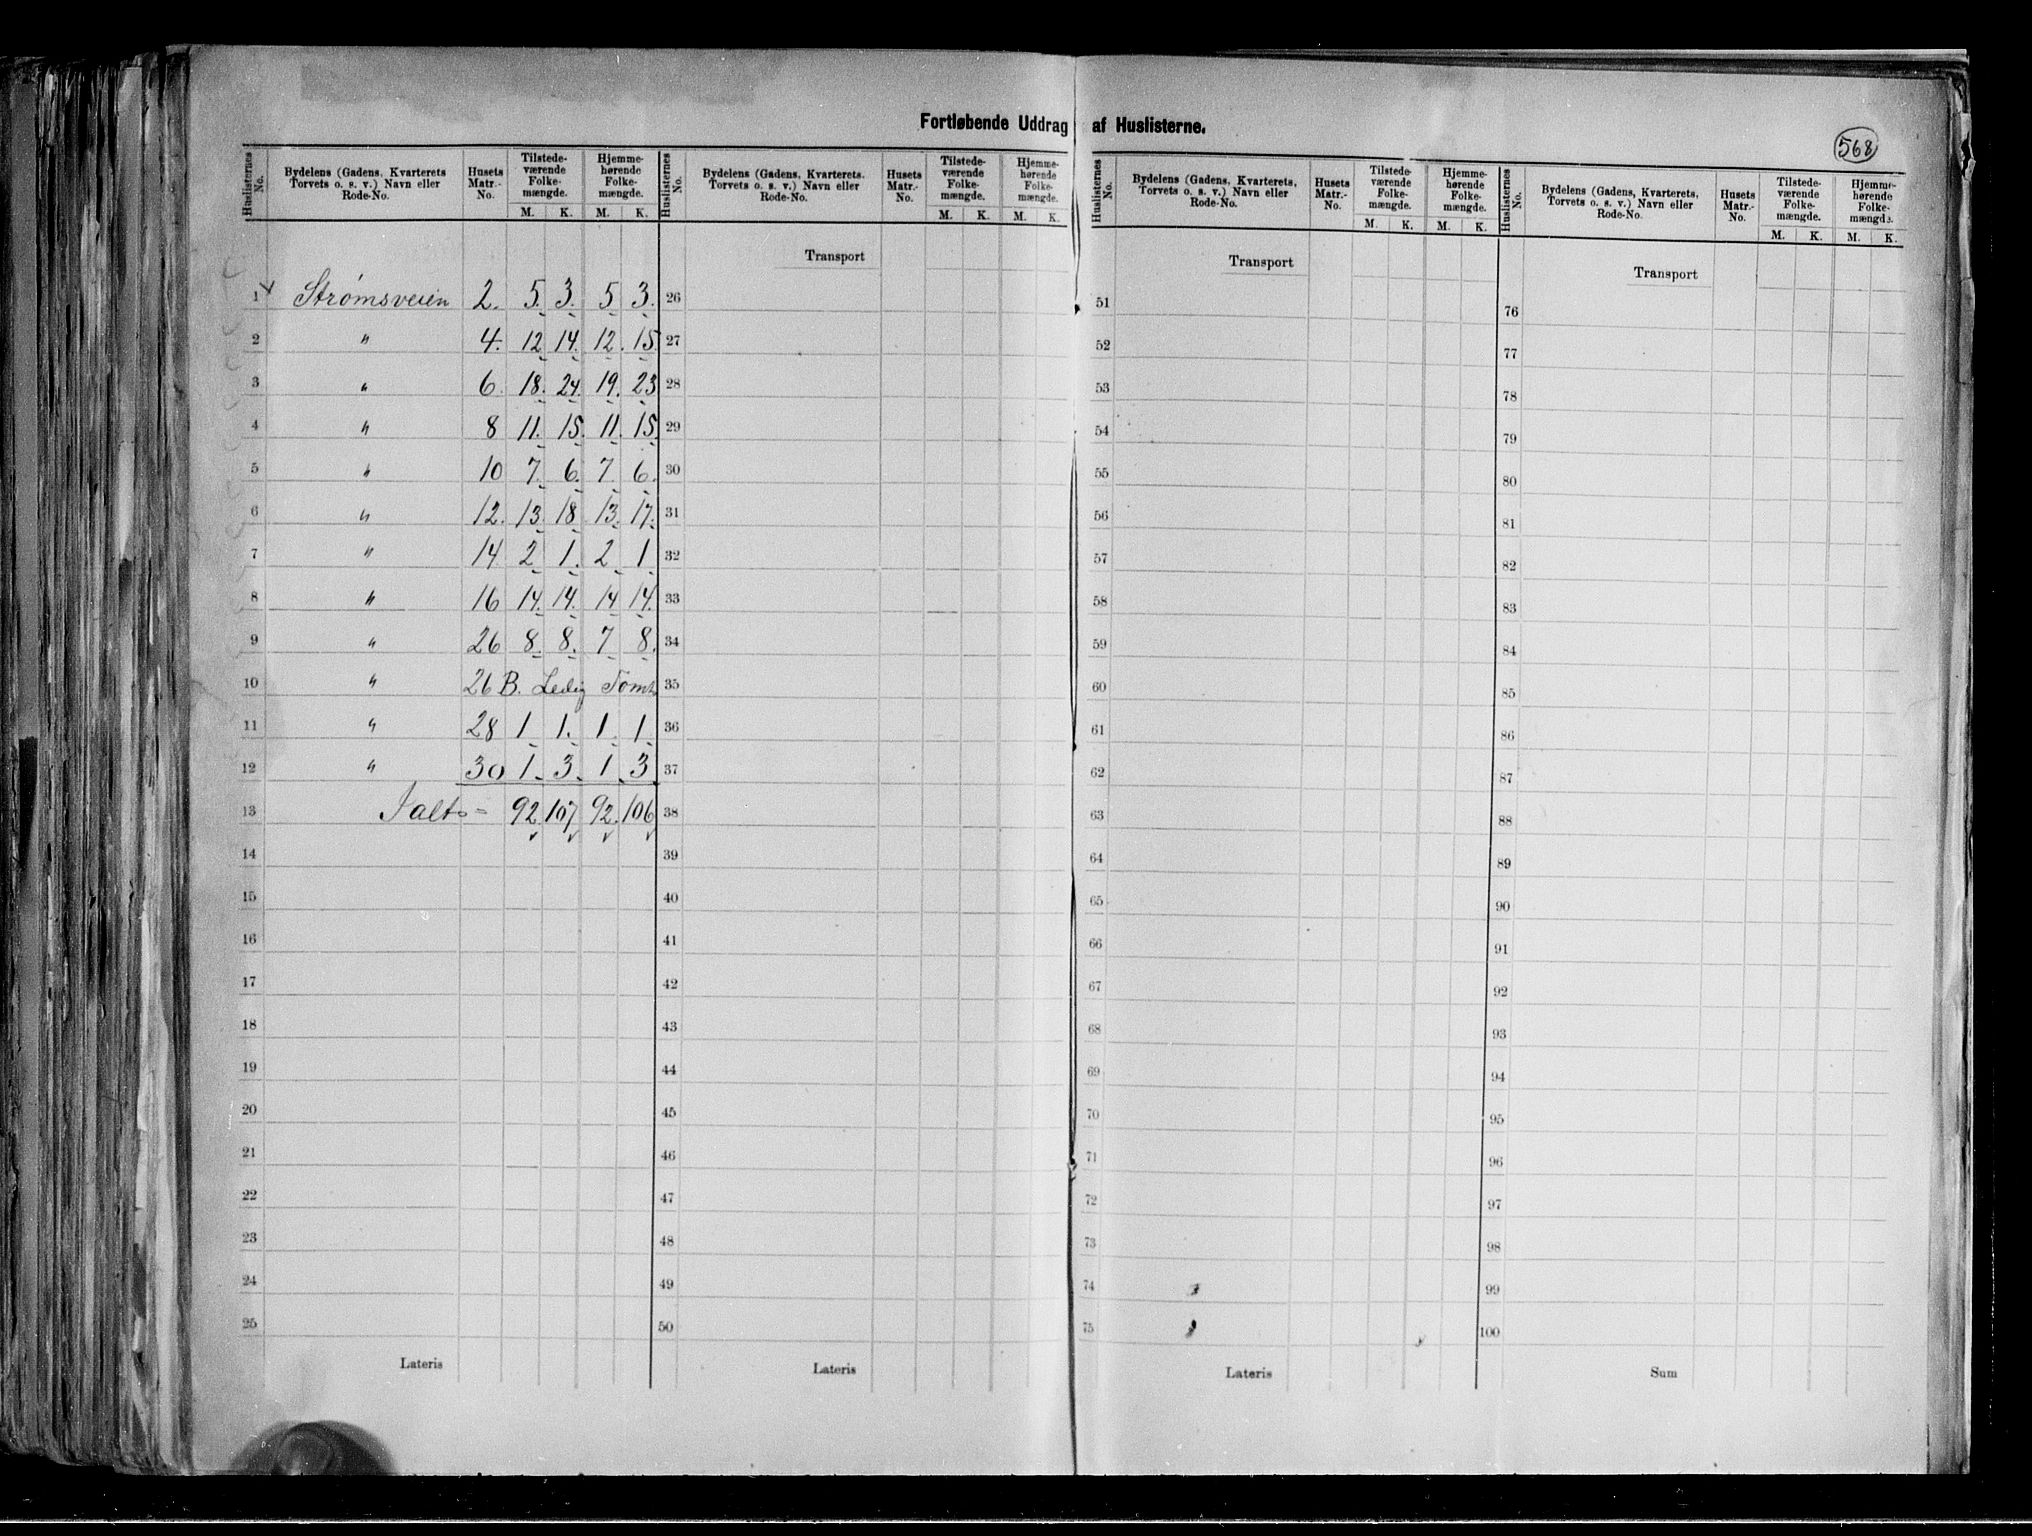 Fortløbende Uddrag af Huslisterne.
568
Huslisternes No. | Bydelens (Gadens, Kvarterets Torvets o. s. v.) Navn eller Rode-No. | Husets Matr.-No. | Tilstedeværende Folkemængde. M. K. | Hjemmehørende Folkemængde. M. K.
1 Strømsveien 2. 5. 3. 5 3.
2 " 4. 12 14. 12. 15.
3 " 6. 18. 24. 19. 23
4 " 8 11. 15. 11. 15.
5 " 10 7. 6. 7. 6.
6 " 12. 13. 18. 13. 17.
7 " 14 2 1. 2 1
8 " 16 14. 14. 14 14.
9 " 26 8. 8. 7 8.
10 " 26 B. Ledig Tomt
11 " 28 1 1. 1. 1
12 " 30 1. 3. 1. 3
13 Ialt = 92 107 92. 106
14
15
16
17
18
19
20
21
22
23
24
25
Lateris
Huslisternes No. | Bydelens (Gadens, Kvarterets, Torvets o. s. v.) Navn eller Rode-No. | Husets Matr.-No. | Tilstedeværende Folkemængde. M. K. | Hjemmehørende Folkemængde. M. K.
Transport
26
27
28
29
30
31
32
33
34
35
36
37
38
39
40
41
42
43
44
45
46
47
48
49
50
Lateris
Huslisternes No. | Bydelens (Gadens, Kvarterets, Torvets o. s. v.) Navn eller Rode-No. | Husets Matr.-No. | Tilstedeværende Folkemængde. M. K. | Hjemmehørende Folkemængde. M. K.
Transport
51
52
53
54
55
56
57
58
59
60
61
62
63
64
65
66
67
68
69
70
71
72
73
74
75
Lateris
Huslisternes No. | Bydelens (Gadens, Kvarterets, Torvets o. s. v.) Navn eller Rode-No. | Husets Matr.-No. | Tilstedeværende Folkemængde. M. K. | Hjemmehørende Folkemængde. M. K.
Transport
76
77
78
79
80
81
82
83
84
85
86
87
88
89
90
91
92
93
94
95
96
97
98
99
100
Sum